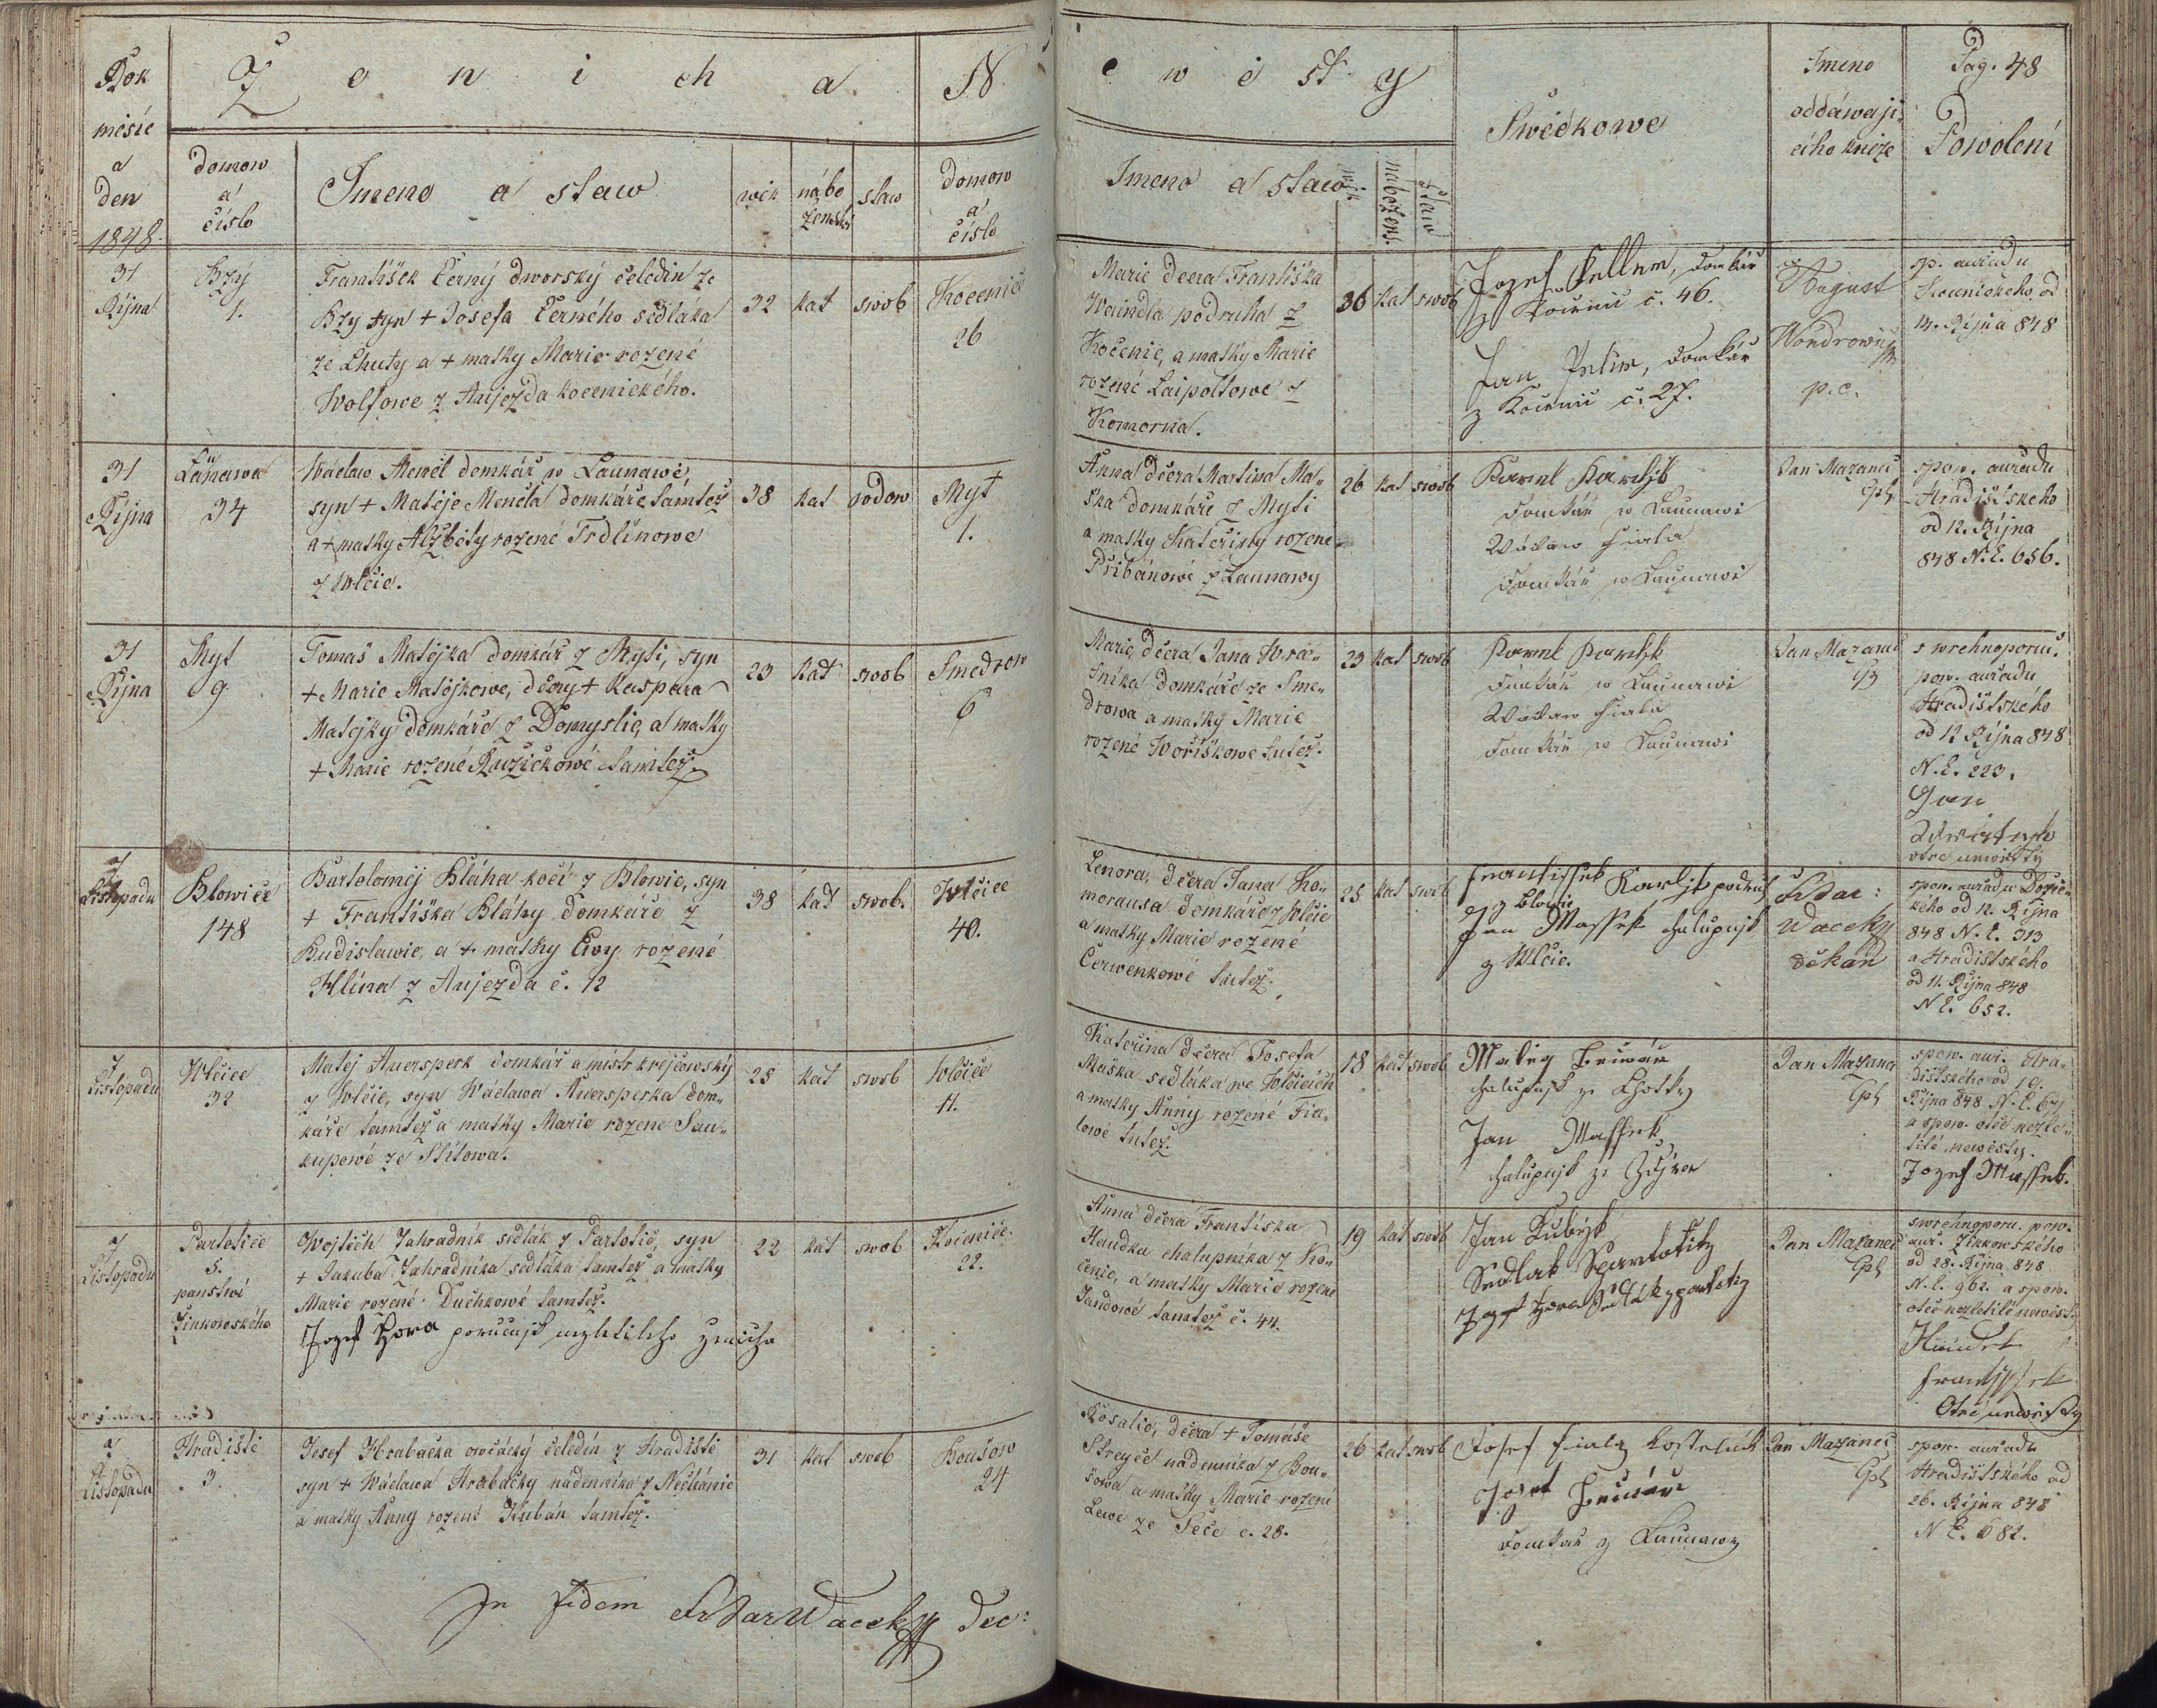 Rok
měsíc
a
den
1848.
Ženicha
Newěsty
domow
a
číslo
Jmeno a staw
wěk
nábo
ženst.
staw
domow
a
číslo
Jmeno a staw
wěk
nabožens.
staw
Swědkowe
Jmeno
oddáwaji„
cího kněze
Pag. 48
Powolení
31
Října
Bzý
1.
František Černý dworský čeledín ze
Bzy syn + Josefa Černého sedláka
ze Lhuty a + matky Marie rozené
Wolfowe z Aujezda kocenického.
32
kat
swob
Kocenice
26
Marie dcera Františka
Waindla podruha z
Kočenic, a matky Marie
rozené Laipoltowe z
Komorna.
36
kat
swob
Jozef Kellner, domkář
z Kočenic č. 46.
Jan domkář
z Kočenic č. 27.
August
Wondrowic
p. c.
sp. auřadu
od
14. Října 848
31
Října
Launawa
34
Wáclaw Menčl domkář w Launawě,
syn + Matěje Menčla domkáře tamtež
a + matky Alžběty rozené Trdlinowe
z Wlčic.
38
kat
wdow
Myt
1.
Anna dcera Martina Ma„
ška domkáře z Myti
a matky Kateřiny rozene
Přibánowé z Launawy
26
kat
swob
Karel
domkář w Launawi
Wáclaw Fiala
domkář w Launawi
Jan Mazanec
Cpl
spow. auřadu
Hradištskeho
od 12. Října
848 N.E. 656.
31
Října
Myt
9
Tomaš Matějka domkář z Myti, syn
+ Marie Matějkowe, dcery + Kaspara
Matejky domkáře z Domyslic, a matky
+ Marie rozené Ružičkowé tamtež.
23
kat
swob
Smedrow
6
Marie, dcera Jana Wra„
tnika domkáře ze Sme„
drowa a matky Marie
rozené Woříškowe tutež.
23
kat
swob
Karel
domkář w Launawi
Wáclaw Fiala
domkář w Launawi
Jan Mazanec
Cpl
s wrchnoporuč.
pow. auřadu
Hradištského
od 12 Října 848
N.E. 223.
Jan
otec newěsty
7
Listopadu
Blowice
148
Bartoloměj Bláha kočí z Blowic, syn
+ Františka Bláhy domkáře z
Budislawic, a + matky Ewy rozené
Hlína z Aujezda č. 12
38
kat
swob.
Wlčice
40.
Lenora, dcera Jana Ko„
morausa domkáře z Wlčic
a matky Marie rozené
Čerwenkowé tutež.
25
kat
swob
Frantissek podruh
z Blowic
Jan Massek chalupnjk
z Wlčic.
Waceky
děkan
spow. auřadu
kého od 12. Října
848 N.E. 313
a Hradištského
od 11. Října 848
N E. 652.
7
Listopadu
Wlčice
32
Matěj Auersperk domkář a mistr krejčowský
z Wlčic, syn Wáclawa Auersperka dom„
káře tamtež a matky Marie rozene Sau„
kupowé ze Štítowa.
25
kat
swob
Wlčice
11.
Kateřina dcera Josefa
Maška sedláka we Wlčicích
a matky Anny rozené Fia„
lowé tutež.
18
kat
swob
Matěg
chalupnjk ze Lhotky
Jan Massek
chalupnjk ze
Jan Mazanec
Cpl
spow. auř. Hra„
dištského od 19.
Října 848 N.E. 671
a spow. otce nezle„
tilé newěsty.
Jozef Massek.
7
Listopadu
Partotice
5.
panstwí
Žinkowského
Wojtěch Zahradník sedlák z Partotic, syn
+ Jakuba Zahradníka sedláka tamtež a matky
Marie rozené Duchkowé tamtež.
Jozef Hora poručnjk nezletileho ženicha
22
kat
swob
Kocenice.
22.
Anna dcera Františka
Haudka chalupníka z Ko„
čenic, a matky Marie rozene
Jandowé tamtež č. 44.
19
kat
swob
Jan Kubjk
Sedlak
Jozef Hora Sedlák z partotic
Jan Mazanec
Cpl
swrchnoporu. pow.
auř. Žinkowského
od 28. Října 848
N.E. 962. a spow.
otce nezletilé newěsty
Haudek
Frantjssek
Otec newěsty
7
Listopadu
Hradiště
3.
Josef Hrabačka owčácký čeledín z Hradiště
syn + Wáclawa Hrabačky nádenníka z Nečtiánic
a matky Anny rozené Kubán tamtež.
31
kat
swob
Boušow
24
Rosalie, dcera + Tomáše
Streyče nádenníka z Bou„
šowa a matky Marie rozené
Lewe ze Seče č. 28.
26
kat
swob
Josef Fiala kostelnik
Josef
domkář z Launawy
Jan Mazanec
Cpl
spow. auřadu
Hradištského od
26. Října 848
N E. 682.
In fidem Wacek Dec: